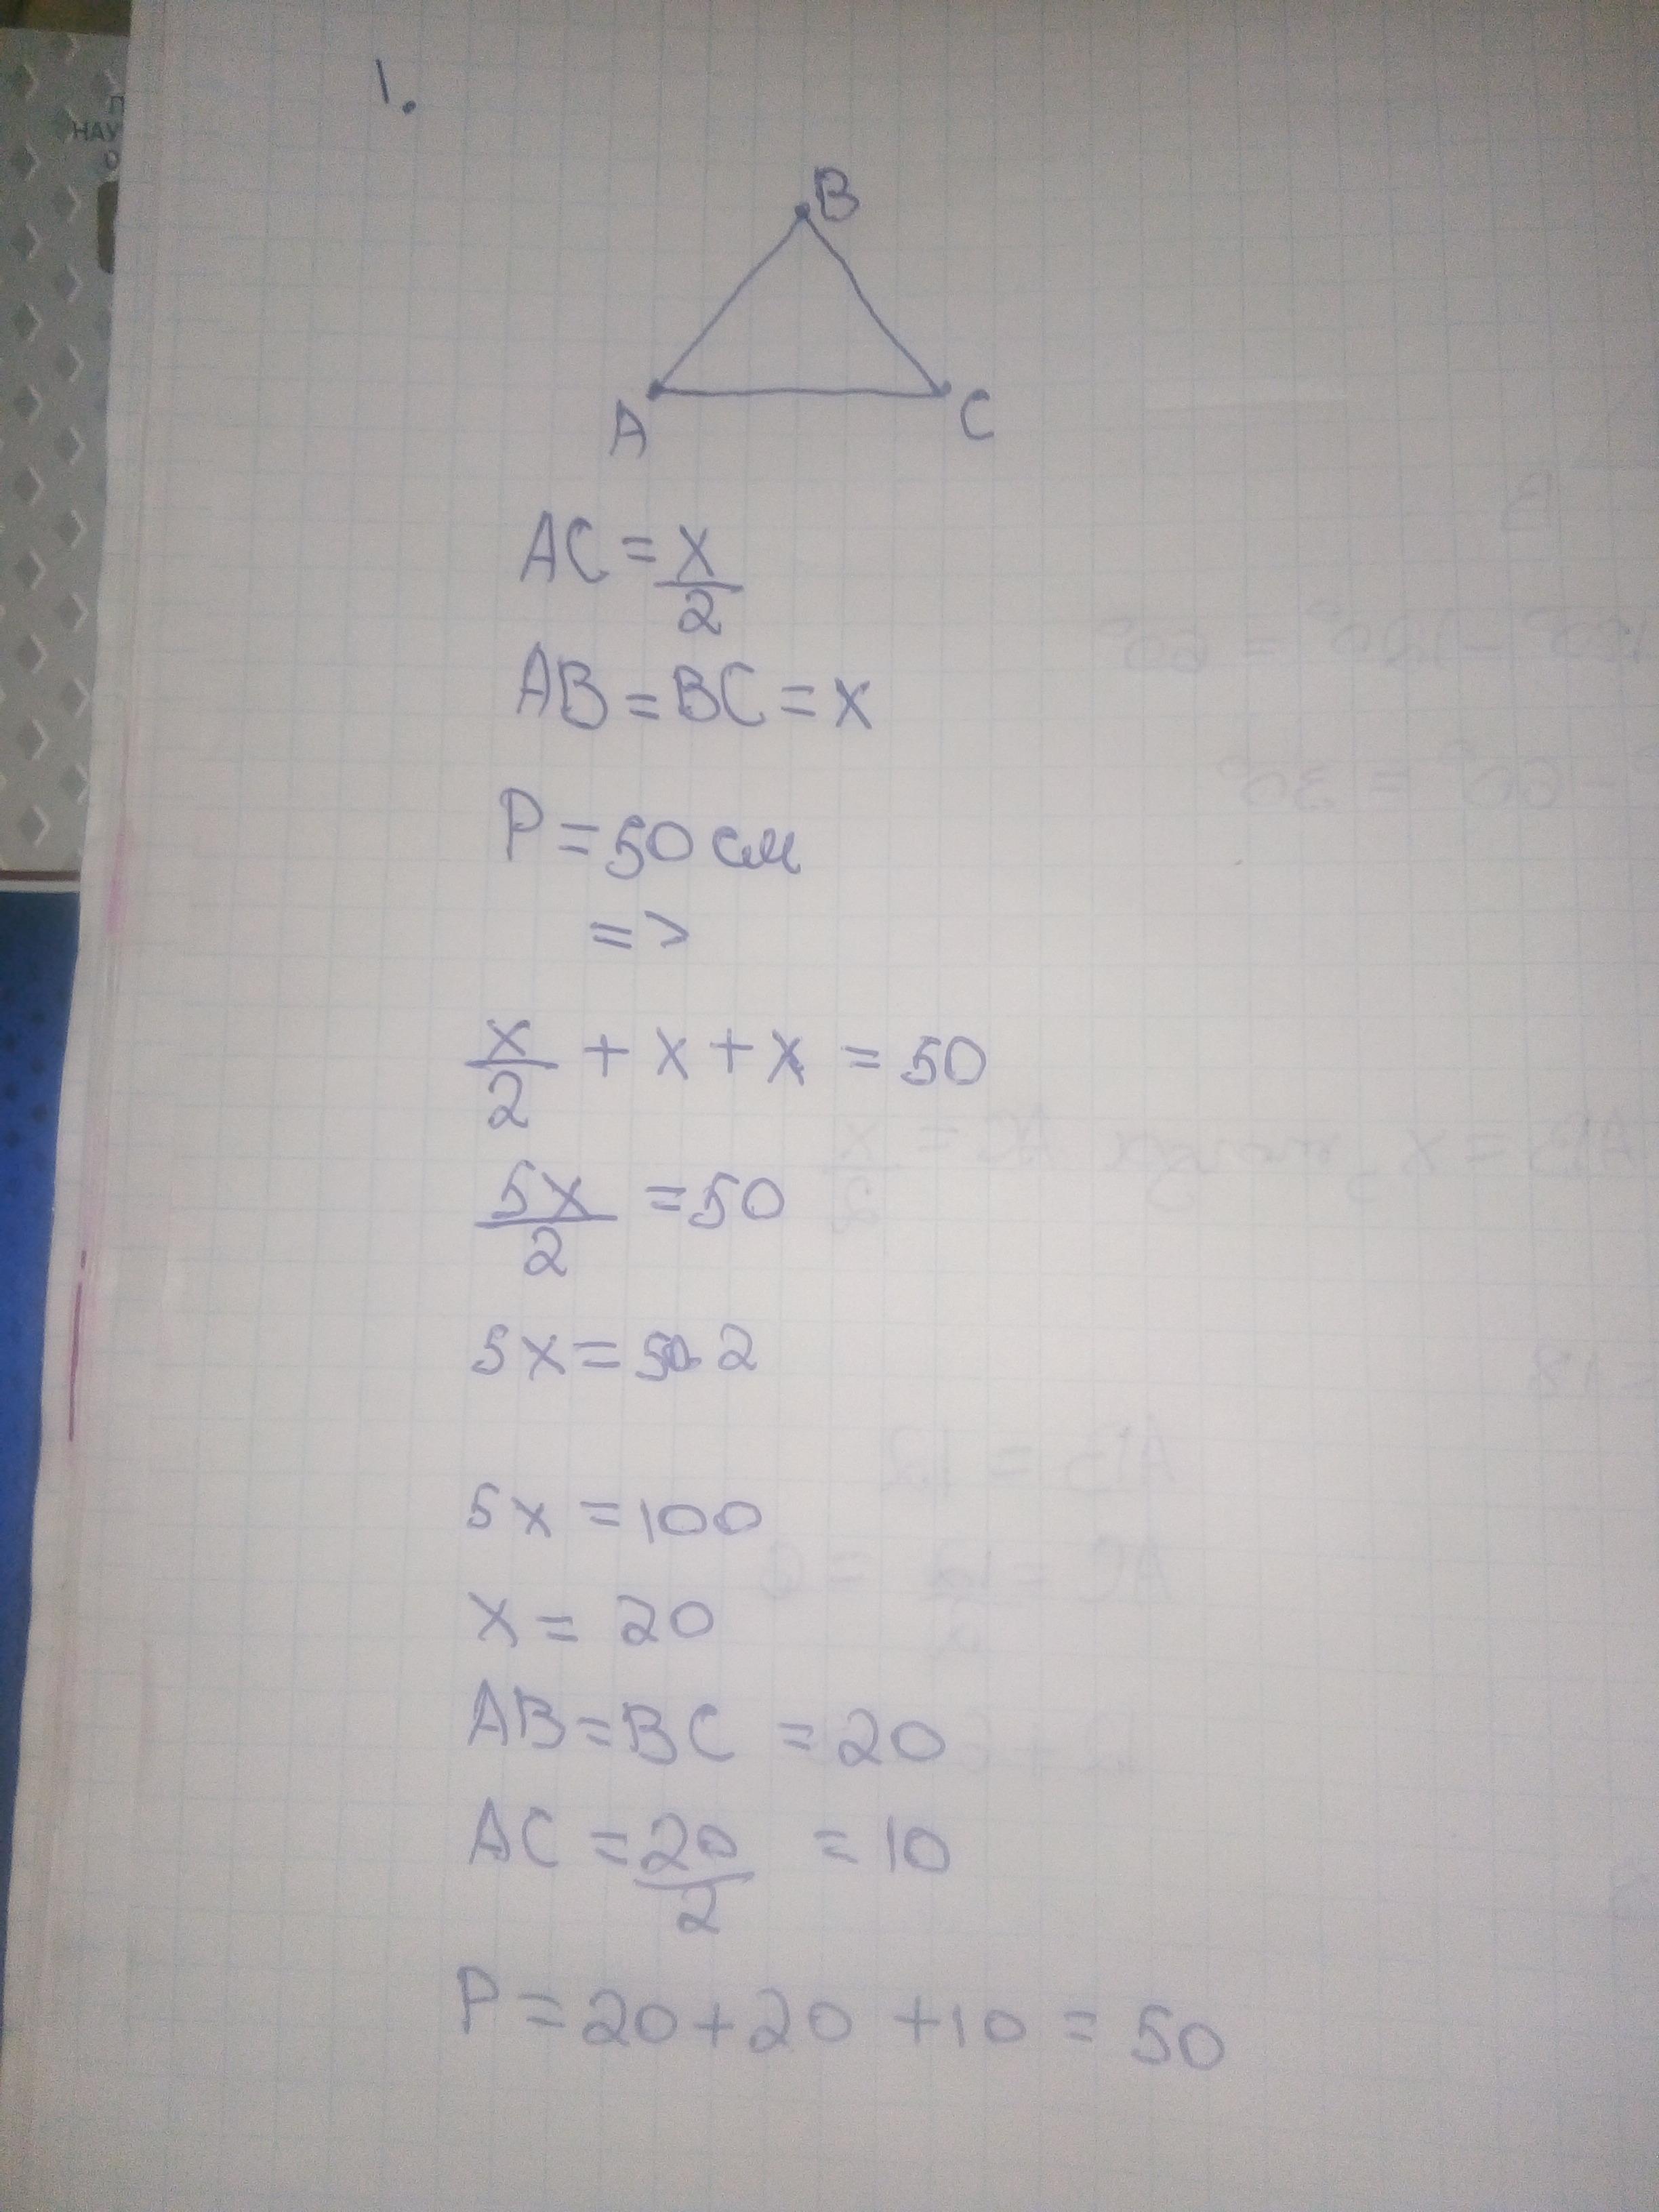 1.
B
A
C
AC = x/2
AB = BC = x
P = 50 см
=>
x/2 + x + x = 50
5x/2 = 50
5x = 50·2
5x = 100
x = 20
AB = BC = 20
AC = 20/2 = 10
P = 20 + 20 + 10 = 50